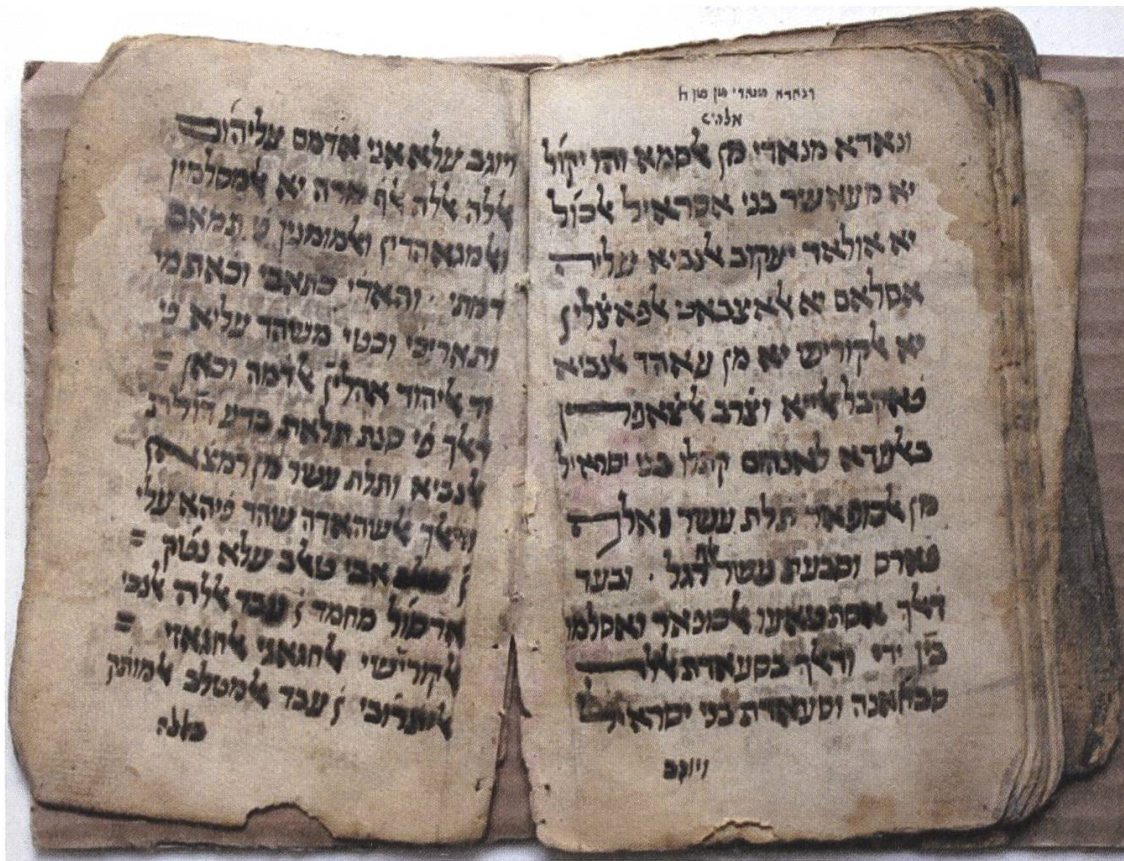 ונאדא מנאדי מן
אלה׳
ונאדא מנאדי מן אלסמא והו יקול
יא מעאשיר בני אסראיל אלכול
יא אולאד יעקוב אלנביא עליה
אסלאם יא אלאצבאט אלפאצלין
יא אלקוריש יא מן עאהד אלנביא
וצרב
באלעדא לאנהום קתלו בני ישראיל
מן אלכופאר תלת עשר אלף
פארס וסבעת עשר אלף רגל · ובעד
דאלך אסתטאעו אלכופאר ואסלמו
בין ידי ודאלך בסעאדת אללה
סבחאנה וסעאדת בני ישראיל
ויוגב
ויוגב עלא אני אדמם עליהום
אללה אללה אלף מרה יא אלמסלמין
ואלמגאהדין ואלמומנין פי תמאם
דמתי · והאדי כתאבי וכאתמי
ותאריכי וכטי משהד עליא פי
יד אליהוד אהלין אלדמה וכאן =
דאלך פי סנת תלאת
אלנביא ותלת עשר מן רמצאן
ודאלך אלשהאדה שהד פיהא עלי
אבי טאלב עלא נטק =
ארסול מחמד עבד אללה אלנבי
אלקורישי אלחגאזי =
עבד אלמטלב